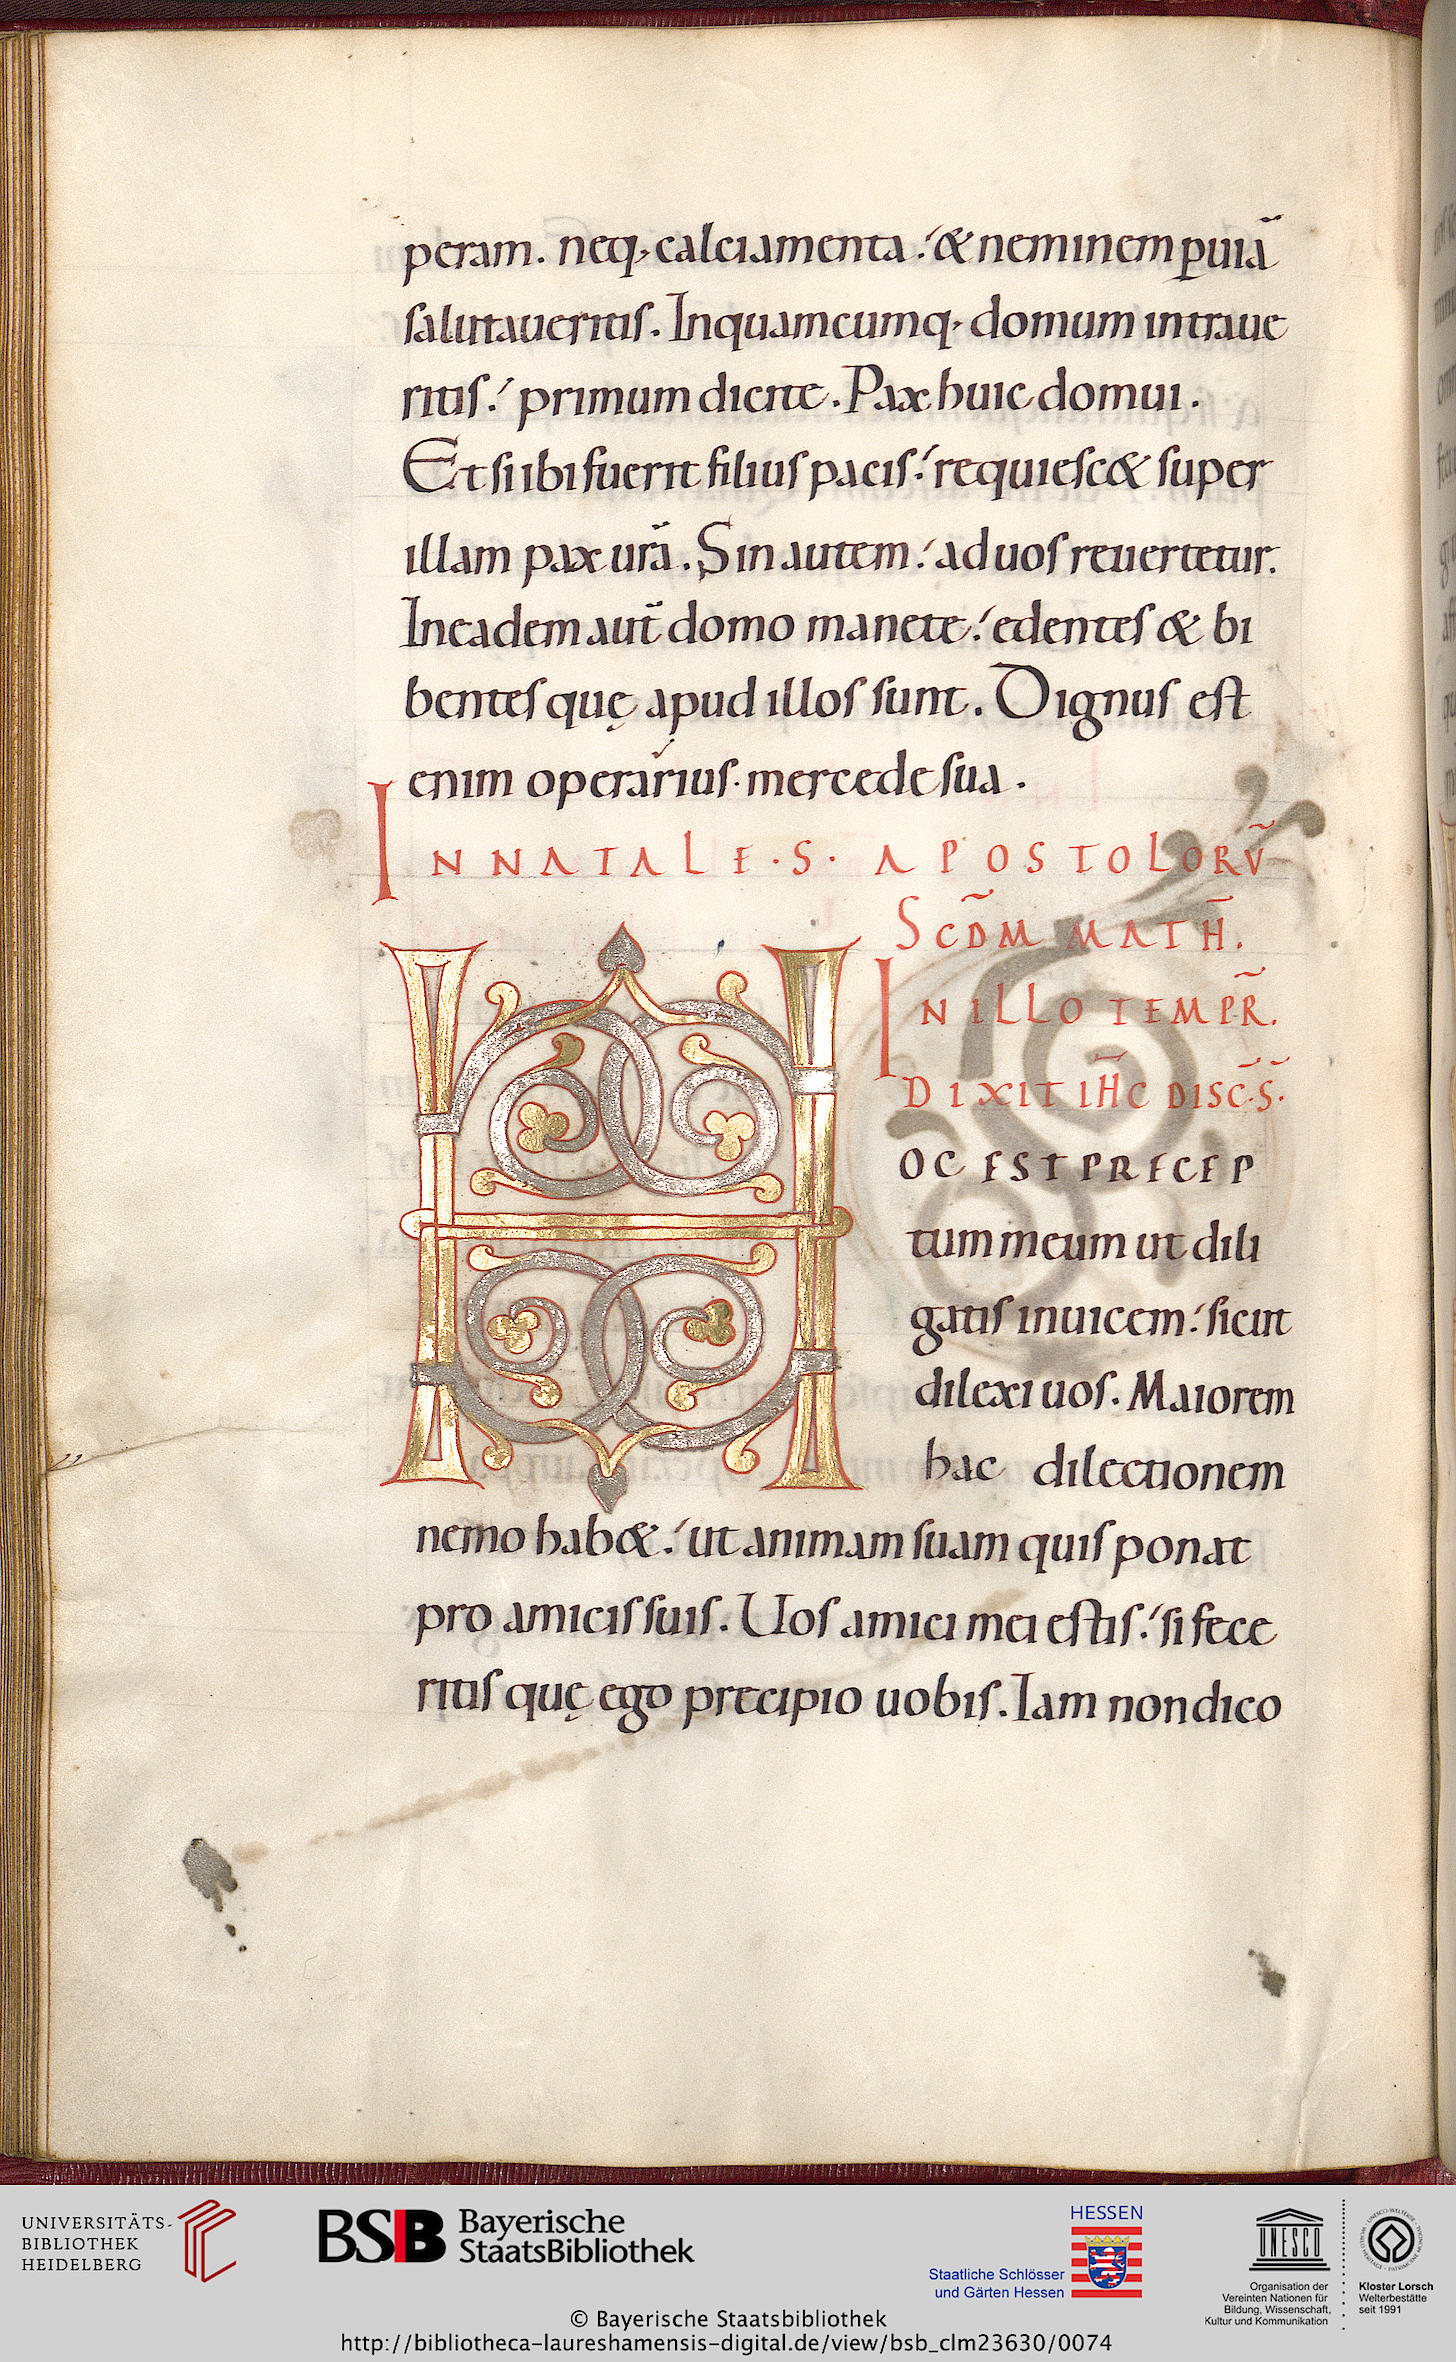 peram. neq; calciamenta. & neminem p uiā
salutaueritis. Inquamcumq; domum intraue
ritis. primum dicite. Pax huic domui.
Et si ibi fuerit filius pacis. requiesc& super
illam pax urā. Sin autem. ad uos reuertetur.
In eadem aut̄ domo manete. edentes & bi
bentes quę apud illos sunt. Dignus est
enim operarius. mercede sua.
IN NATALE · S · APOSTOLORŪ
SCDM MATH̄.
IN ILLO TEMPR̄.
DIXIT IH̄C DISC̄·S̄·
HOC EST PRECEP
tum meum ut dili
gatis inuicem. sicut
dilexi uos. Maiorem
hac dilectionem
nemo hab&. ut animam suam quis ponat
pro amicis suis. Uos amici mei estis. si fece
ritis quę ego precipio uobis. Iam non dico
UNIVERSITÄTS-
BIBLIOTHEK
HEIDELBERG
BSB Bayerische
StaatsBibliothek
HESSEN
Staatliche Schlösser
und Gärten Hessen
UNESCO
Organisation der
Vereinten Nationen für
Bildung, Wissenschaft,
Kultur und Kommunikation
Kloster Lorsch
Welterbestätte
seit 1991
© Bayerische Staatsbibliothek
http://bibliotheca-laureshamensis-digital.de/view/bsb_clm23630/0074